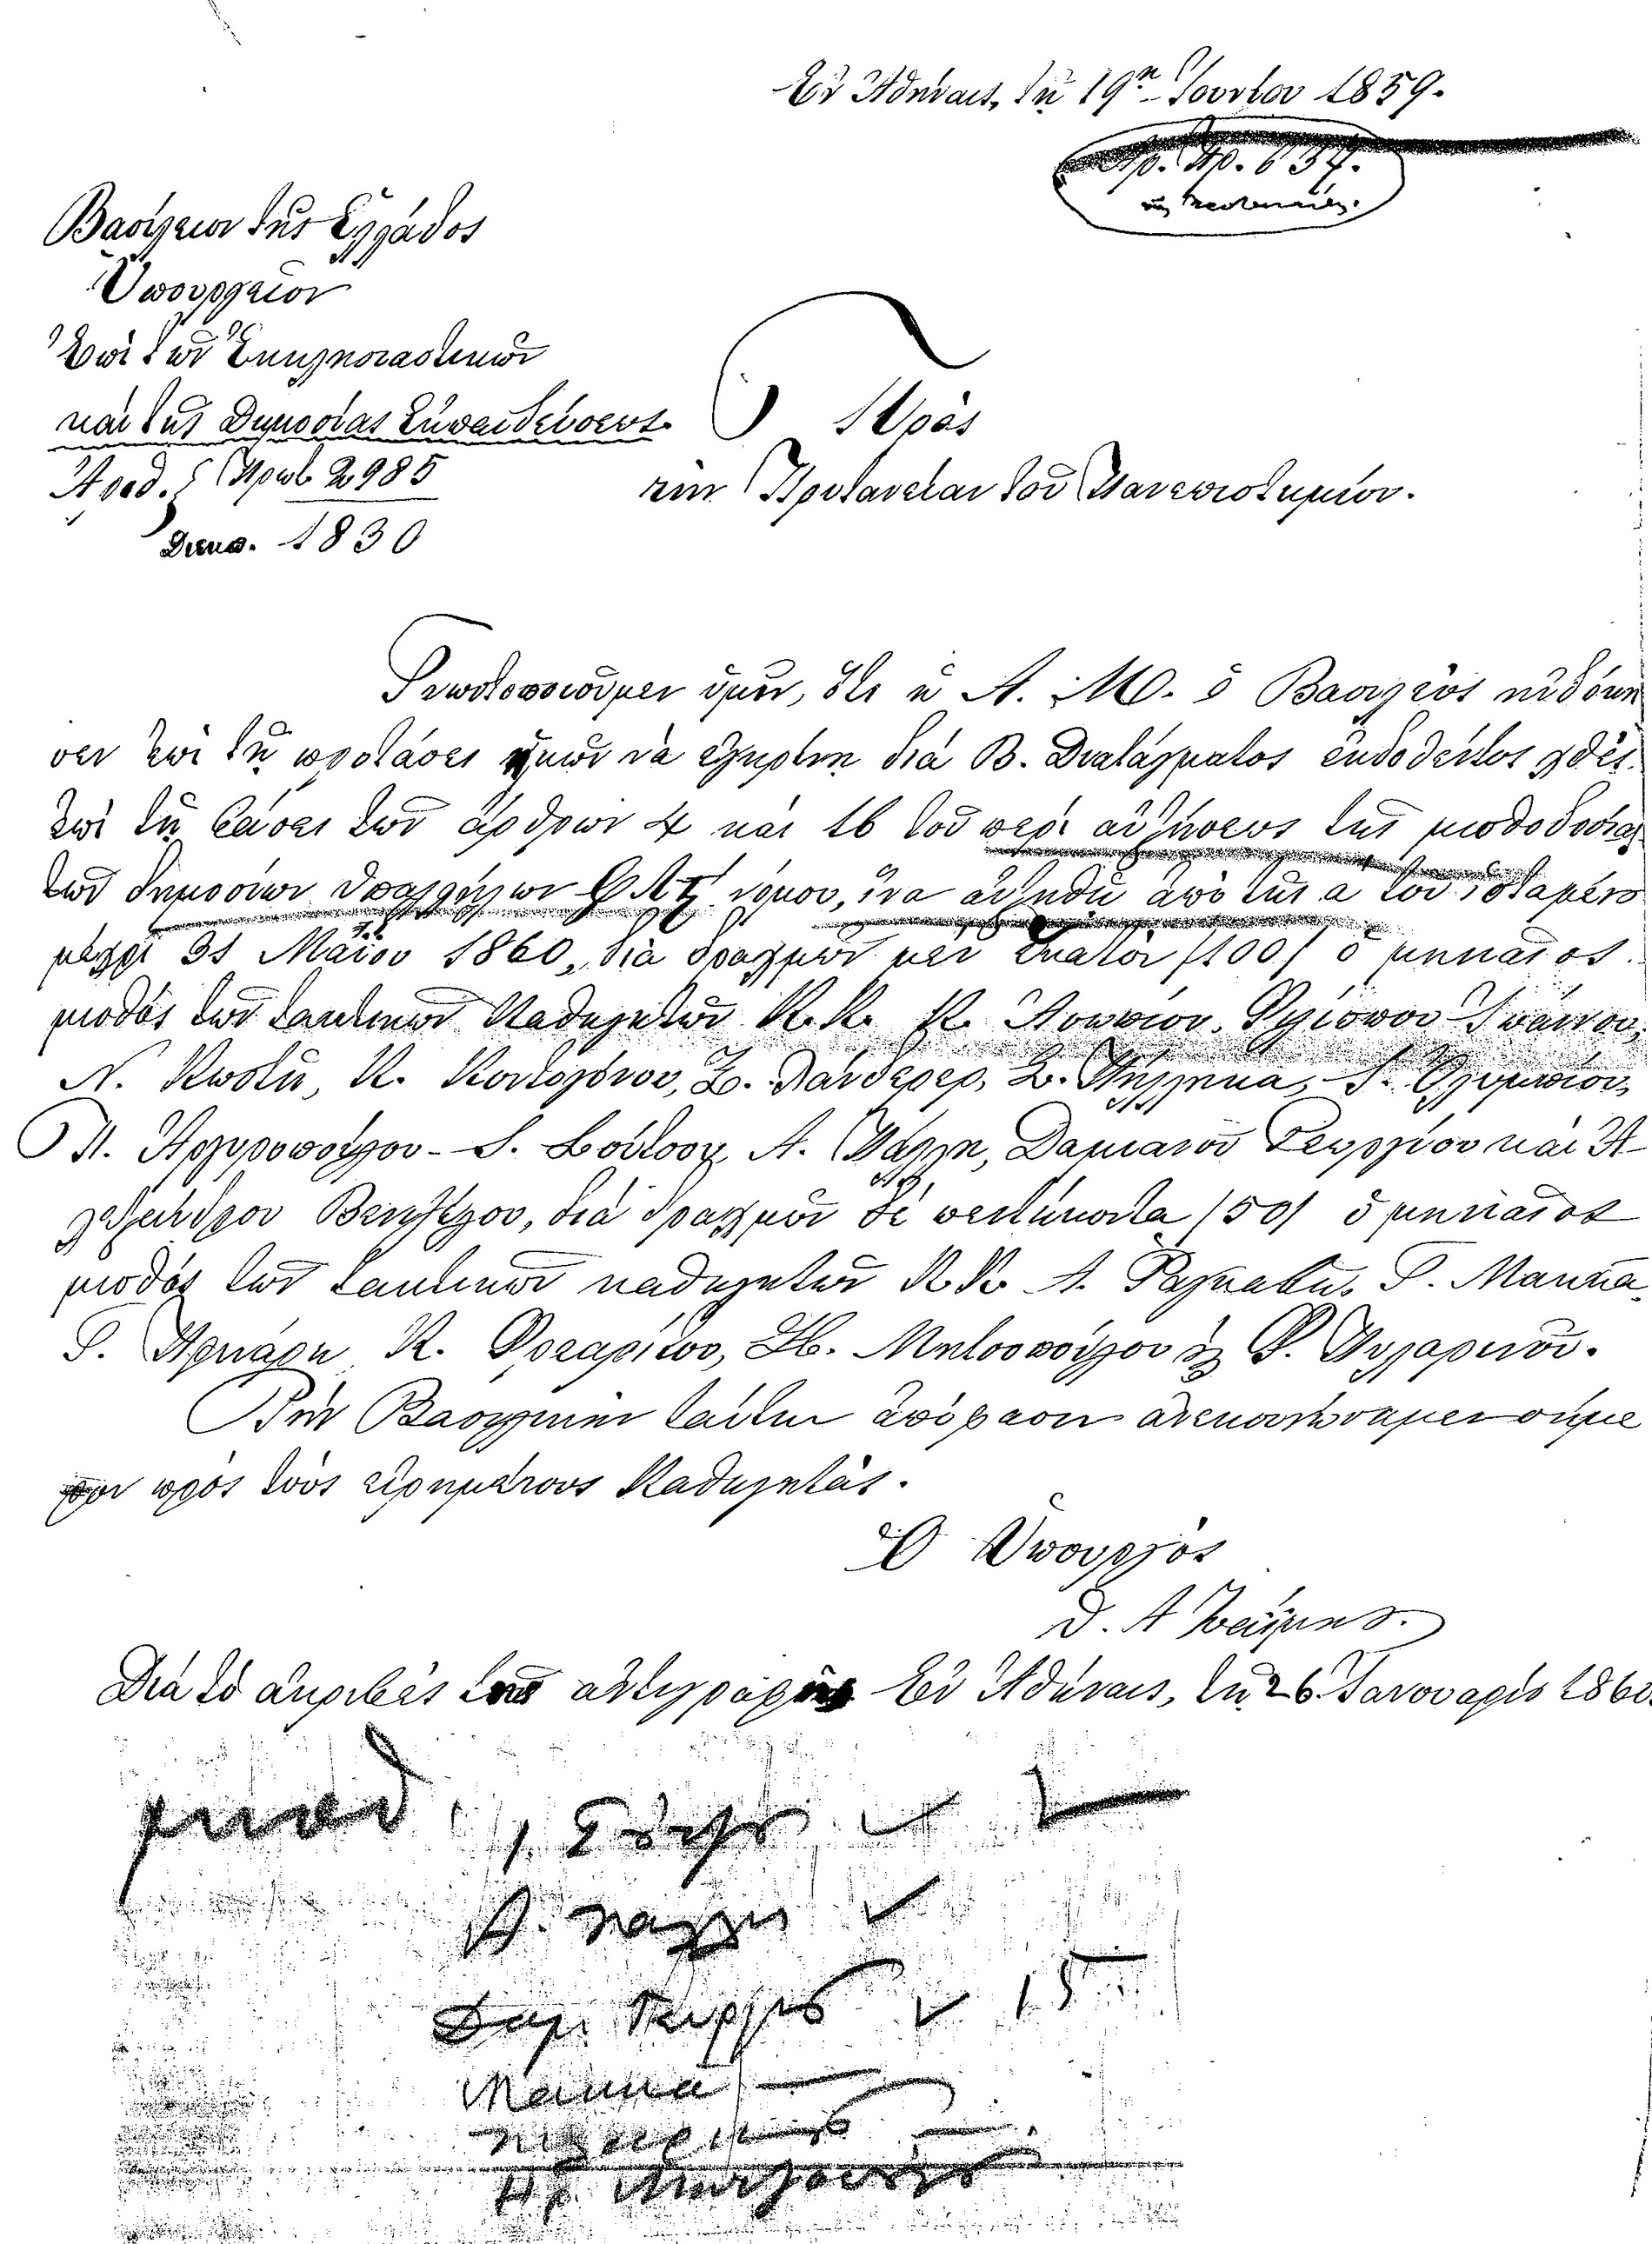 Ἐν Ἀθήναις, τῇ 19ῃ Ἰουνίου 1859.
Ἀρ. Πρ. 637.
Βασίλειον τῆς Ἑλλάδος
Ὑπουργεῖον
Ἐπὶ τῶν Ἐκκλησιαστικῶν
καὶ τῆς Δημοσίας Ἐκπαιδεύσεως.
Ἀριθ. Πρωτ. 2985
Διεκπ. 1830
Πρὸς
τὴν Πρυτανείαν τοῦ Πανεπιστημίου.
Γνωστοποιοῦμεν ὑμῖν, ὅτι ἡ Α. Μ. ὁ Βασιλεὺς ηὐδόκη
σεν ἐπὶ τῇ προτάσει ἡμῶν νὰ ἐγκρίνῃ διὰ Β. Διατάγματος ἐκδοθέντος χθὲς
ἐπὶ τῇ βάσει τῶν ἄρθρων 4 καὶ 16 τοῦ περὶ αὐξήσεως τῆς μισθοδοσίας
τῶν δημοσίων ὑπαλλήλων ΦΛΖ νόμου, ἵνα αὐξηθῇ ἀπὸ τῆς α τοῦ ἱσταμένου
μέχρι 31 Μαΐου 1860, διὰ δραχμῶν μὲν ἑκατὸν /100/ ὁ μηνιαῖος
μισθὸς τῶν τακτικῶν Καθηγητῶν Κ.Κ. Κ. Ἀσωπίου, Φιλίππου Ἰωάννου,
Ν. Κωστῆ, Κ. Κοντογόνου, Ξ. Λάνδερερ, Σ. Πήλληκα, Ι. Ὀλυμπίου,
Π. Ἀργυροπούλου - Ι. Σούτσου, Α. Πάλλη, Δαμιανοῦ Γεωργίου καὶ Ἀ-
λεξάνδρου Βενιζέλου, διὰ δραχμῶν δὲ πεντήκοντα /50/ ὁ μηνιαῖος
μισθὸς τῶν τακτικῶν καθηγητῶν Κ.Κ. Α. Ραγκαβῆ, Γ. Μακκᾶ,
Γ. Πρινάρη, Κ. Φρεαρίτου, Ἡρ. Μητσοπούλου καὶ Θ. Ἀφεντούλη.
Τὴν Βασιλικὴν ταύτην ἀπόφασιν ἀνεκοινώσαμεν σήμε
ρον πρὸς τοὺς εἰρημένους Καθηγητάς.
Ὁ Ὑπουργὸς
Θ. Α Ζαΐμης.
Διὰ τὸ ἀκριβὲς τῆς ἀντιγραφῆς Ἐν Ἀθήναις, τῇ 26 Ἰανουαρίου 1860
Α. Παλλη
Δαμ. Γεωργίου 15
Μακκα